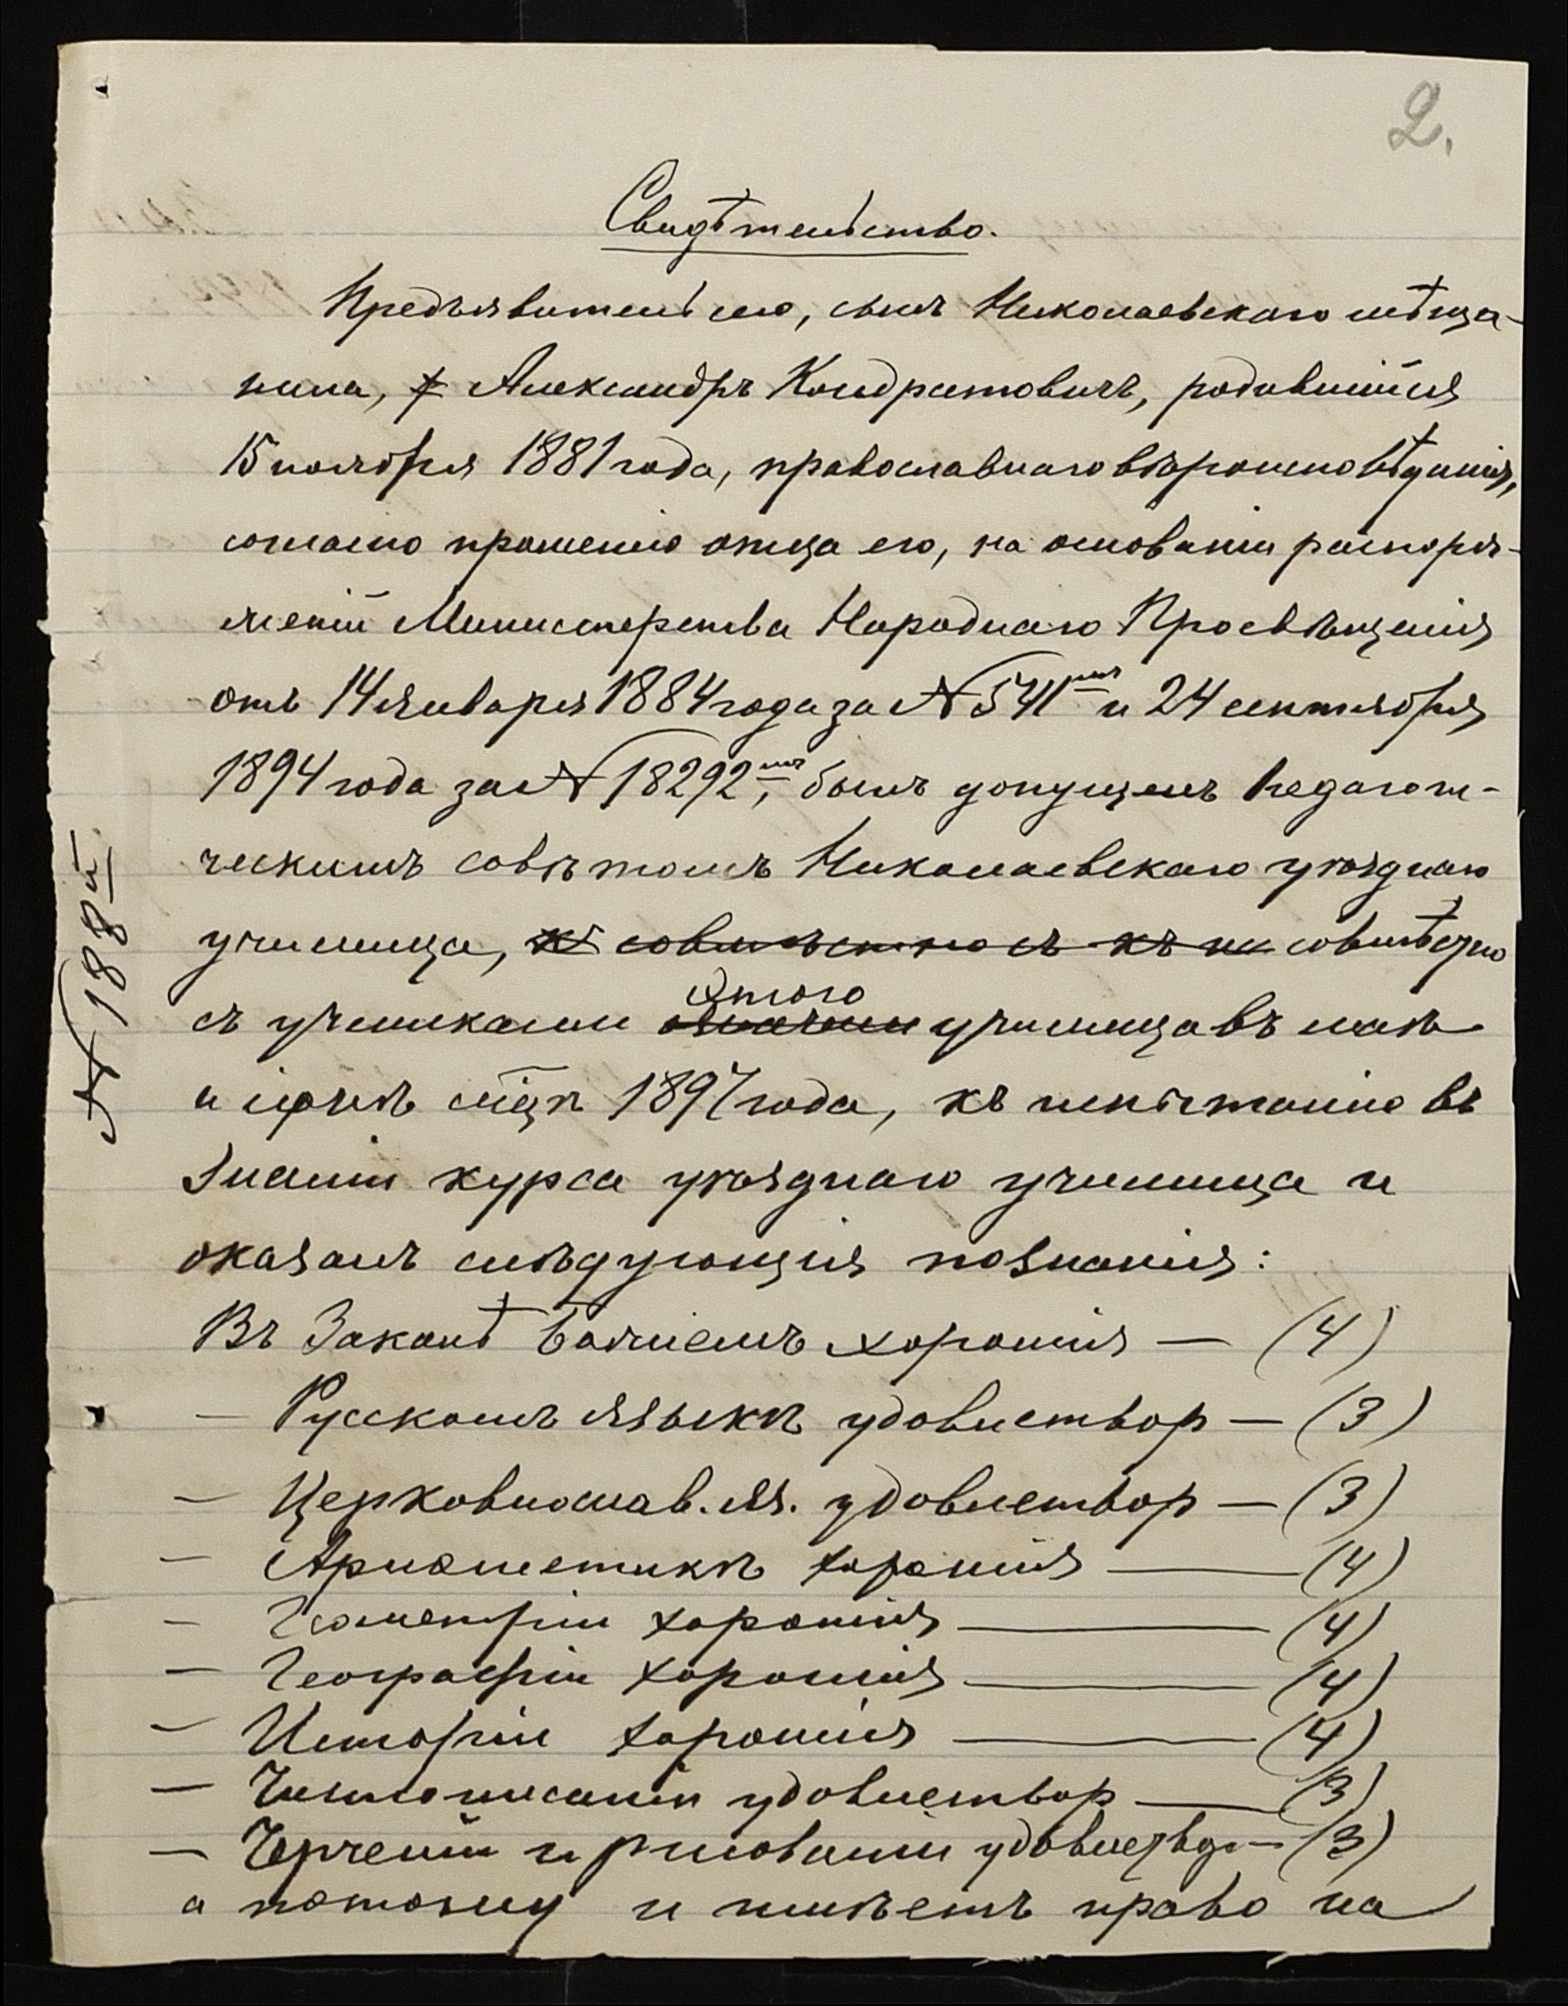 2.
Свидѣтельство.
Предъявитель сего, сынъ Николаевскаго мѣща-
нина, Александръ Кондратовичъ, родившійся
15 ноября 1881 года, православнаго вѣроисповѣданія,
согласно прошенію отца его, на основаніи распоря-
женій Министерства Народнаго Просвѣщенія
отъ 14 января 1884 года за № 541мъ и 24 сентября
1894 года за № 18292мъ, былъ допущенъ педагоги-
ческимъ совѣтомъ Николаевскаго уѣзднаго
училища, совмѣстно съ къ совмѣстно
съ учениками этого училища въ маѣ
и іюнѣ мѣцѣ 1897 года, къ испытанію въ
знаніи курса уѣзднаго училища и
оказалъ слѣдующія познанія:
Въ Законѣ Божіемъ хорошія — (4)
— Русскомъ языкѣ удовлетвор — (3)
— Церковнослав. яз. удовлетвор — (3)
— Ариѳметикѣ хорошія — (4)
— Геометріи хорошія — (4)
— Географіи хорошія — (4)
— Исторіи хорошія — (4)
— Чистописаніи удовлетвор — (3)
— Черченіи и рисованіи удовлетвор — (3)
а потому и имѣетъ право на
№ 188й